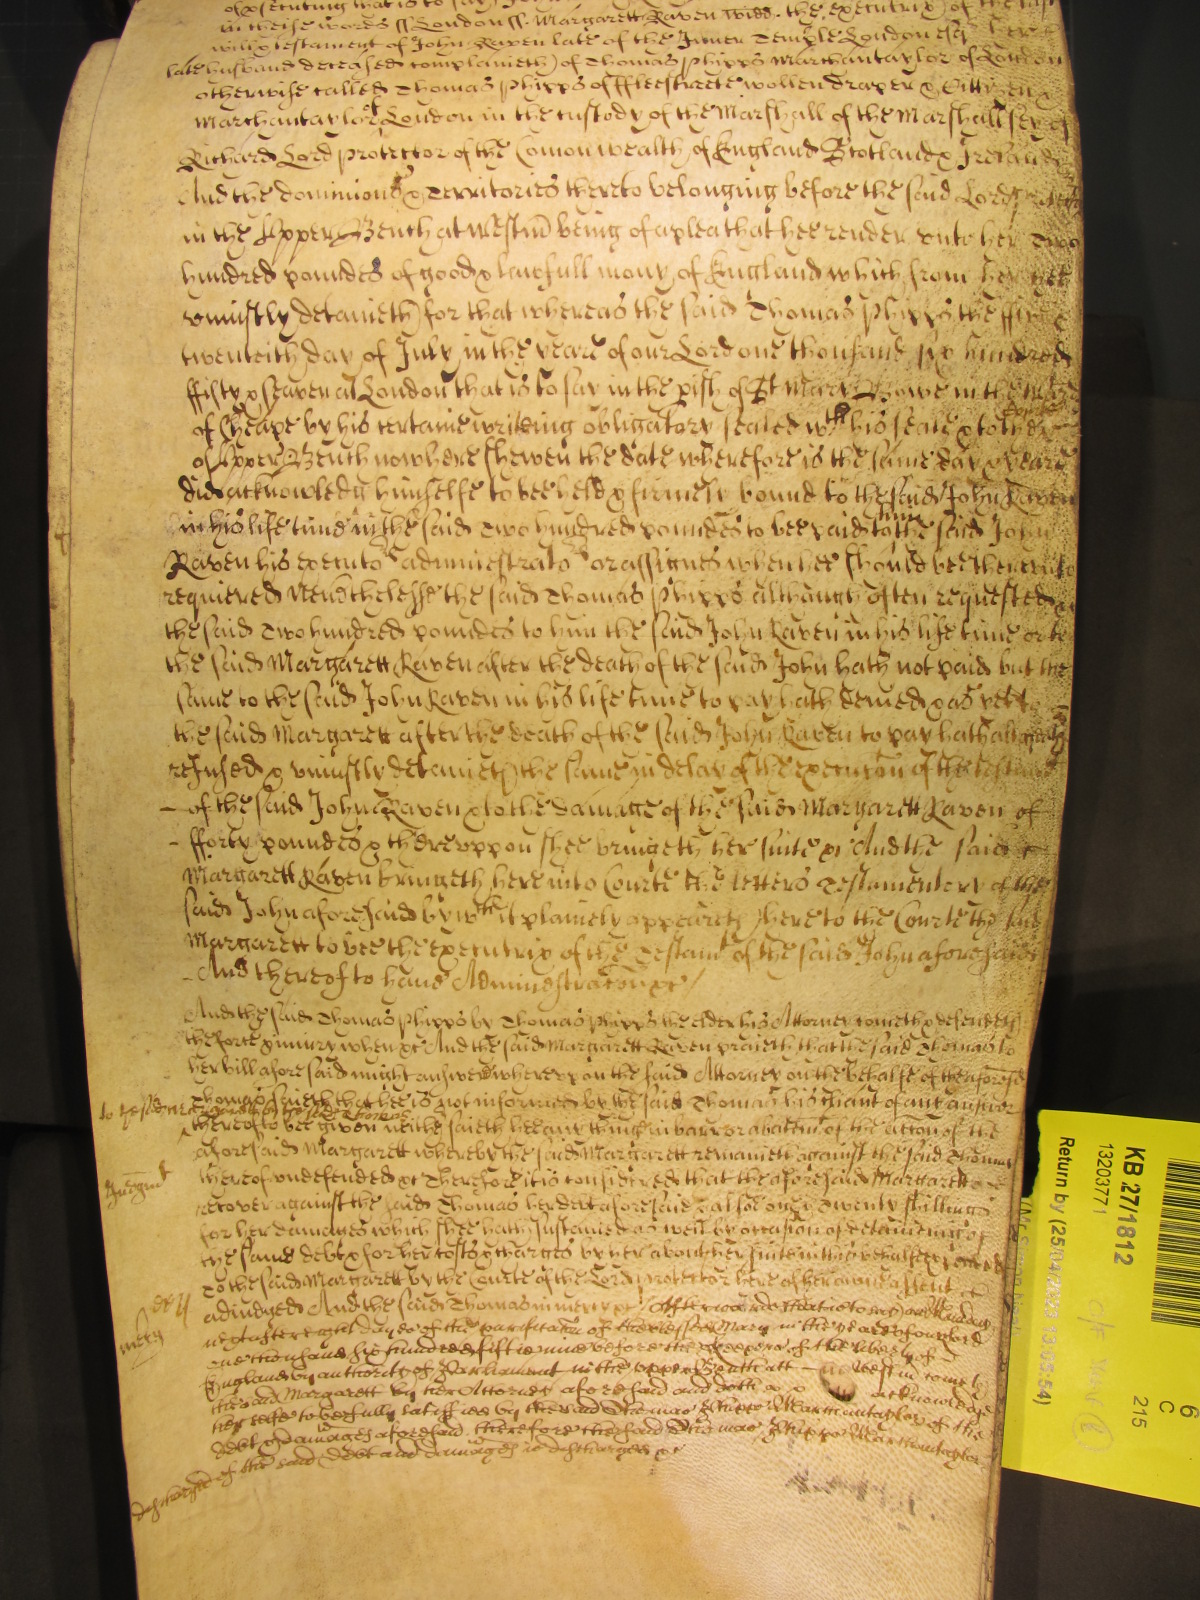 in theise words ss London ss. Margarett Raven widd. the executrix of the last
will & testament of John Raven late of the Inner Temple London esqr
late husband deceased complaineth of Thomas Phipps Marchantaylor of London
otherwise called Thomas Phipps of ffleestreete wollen draper & Cittizen &
Marchantaylor of London in the custody of the Marshall of the Marshallsey of
Richard Lord Protector of the Comon wealth of England Scotland & Ireland
And the dominions & Territories thereto belonging before the said Lord
in the Upper Bench at Westm being of a plea that hee render unto her Two
hundred poundes of good & lawfull mony of England which from her hee
uniustly detaineth for that whereas the said Thomas Phipps the
twenteith day of July in the yeare of our Lord one thousand six hundred
ffifty & seaven at London that is to say in the pish of St Mary Bowe in the
of Cheape by his certaine writeing obligatory sealed wth his seale & to the Courte
of Upper Bench now here shewen the date wherefore is the same day & yeare
did acknowledg himselfe to bee held & firmely bound to the said John Raven
in his life time in the said Two hundred poundes to bee paid to the said John
Raven his executors administrators or assignes when hee should bee thereunto
requiered Nevthelesse the said Thomas Phipps although often requested
the said Two hundred poundes to him the said John Raven in his life time or to
the said Margarett Raven after the death of the said John hath not paid but the
same to the said John Raven in his life time to pay hath denied & as yet to
the said Margarett after the death of the said John Raven to pay hath
refused & uniustly detaineth the same in delay of the execucon of the
of the said John Raven & to the damage of the said Margarett Raven of
fforty poundes & thereuppon shee bringeth her suite &c And the said
Margarett Raven bringeth here into Courte the letters Testamentary of the
said John aforesaid by wch it plainely appeareth here to the Courte the said
Margarett to bee the executrix of the Testamt of the said John aforesaid
And thereof to have Administracon &c
And the said Thomas Phipps by Thomas Phipps the elder his Attorney cometh & defendeth
the force & iniury when &c And the said Margarett Raven praieth that the said Thomas to
her bill aforesaid might answer whereupon the said Attorney on the behalfe of the aforesd
Thomas saieth that hee is not informed by the said Thomas his Cliant of any answer
thereof to bee given neither saieth hee any thing in barr or abattmt of the accon of the
aforesaid Margarett whereby the said Margarett remaineth against the said Thomas
thereof undefended &c Therefore it is considered that the aforesaid Margarett
recover against the said Thomas her debt aforesaid & alsoe Twenty shillings
for her damages which shee hath sustained as well by occasion of detaineing of
the same debt & for her costs & charges by her about her suite in this behalfe
To the said Margarett by the Courte of the Lord Protector here of her owne assent
adiudged And the said Thomas in mercy &c Afterwards that is to say on
Judgmt
mercy
next after eight dayes of the purificacon of the blessed Mary in the yeare of our Lord
one thousand six hundred fiftie nine before the Keepers of the liberty of
England by authority of Parliament in the upper Bench att Westm cometh
the said Margarett by her Attorney aforesaid and doth acknowledge
her selfe to bee fully satisfied by the said Thomas Phipps Marchantaylor of the
debt & damages aforesaid therefore the said Thomas Phipps Marchantaylor
of the said debt and damages is discharged &c
discharged
KB 27/1812
13203771
Return by (25/04/2023 13:05:54)
6
C
215